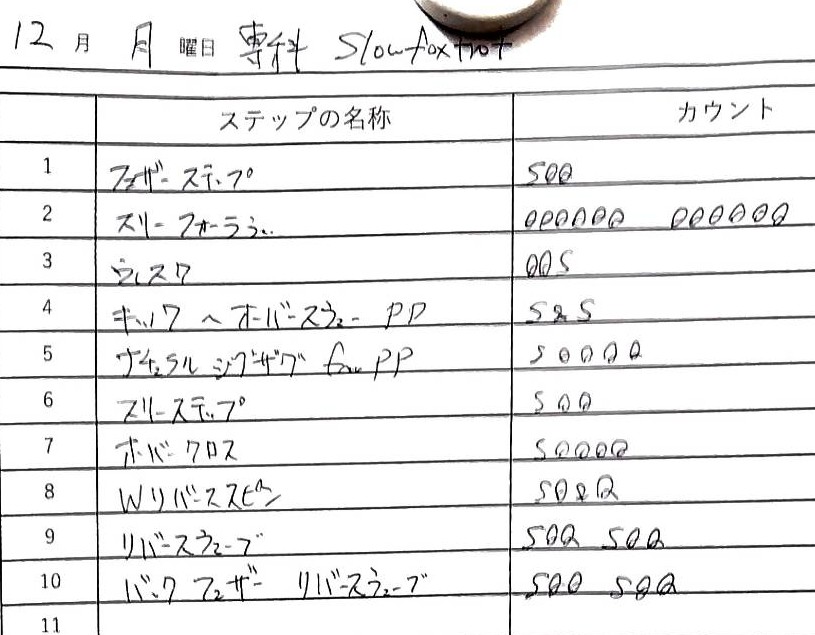 12 月 月 曜日 専科 Slowfoxtrot
ステップの名称 カウント
1 フェザーステップ SQQ
2 スリーフォーラウェー QQQQQQ QQQQQQ
3 ウィスク QQS
4 キック へ オーバースウェー PP S&S
5 ナチュラル ジグザグ from PP SQQQQ
6 スリーステップ SQQ
7 ホバークロス SQQQQ
8 Wリバーススピン SQ&Q
9 リバースウェーブ SQQ SQQ
10 バックフェザー リバースウェーブ SQQ SQQ
11